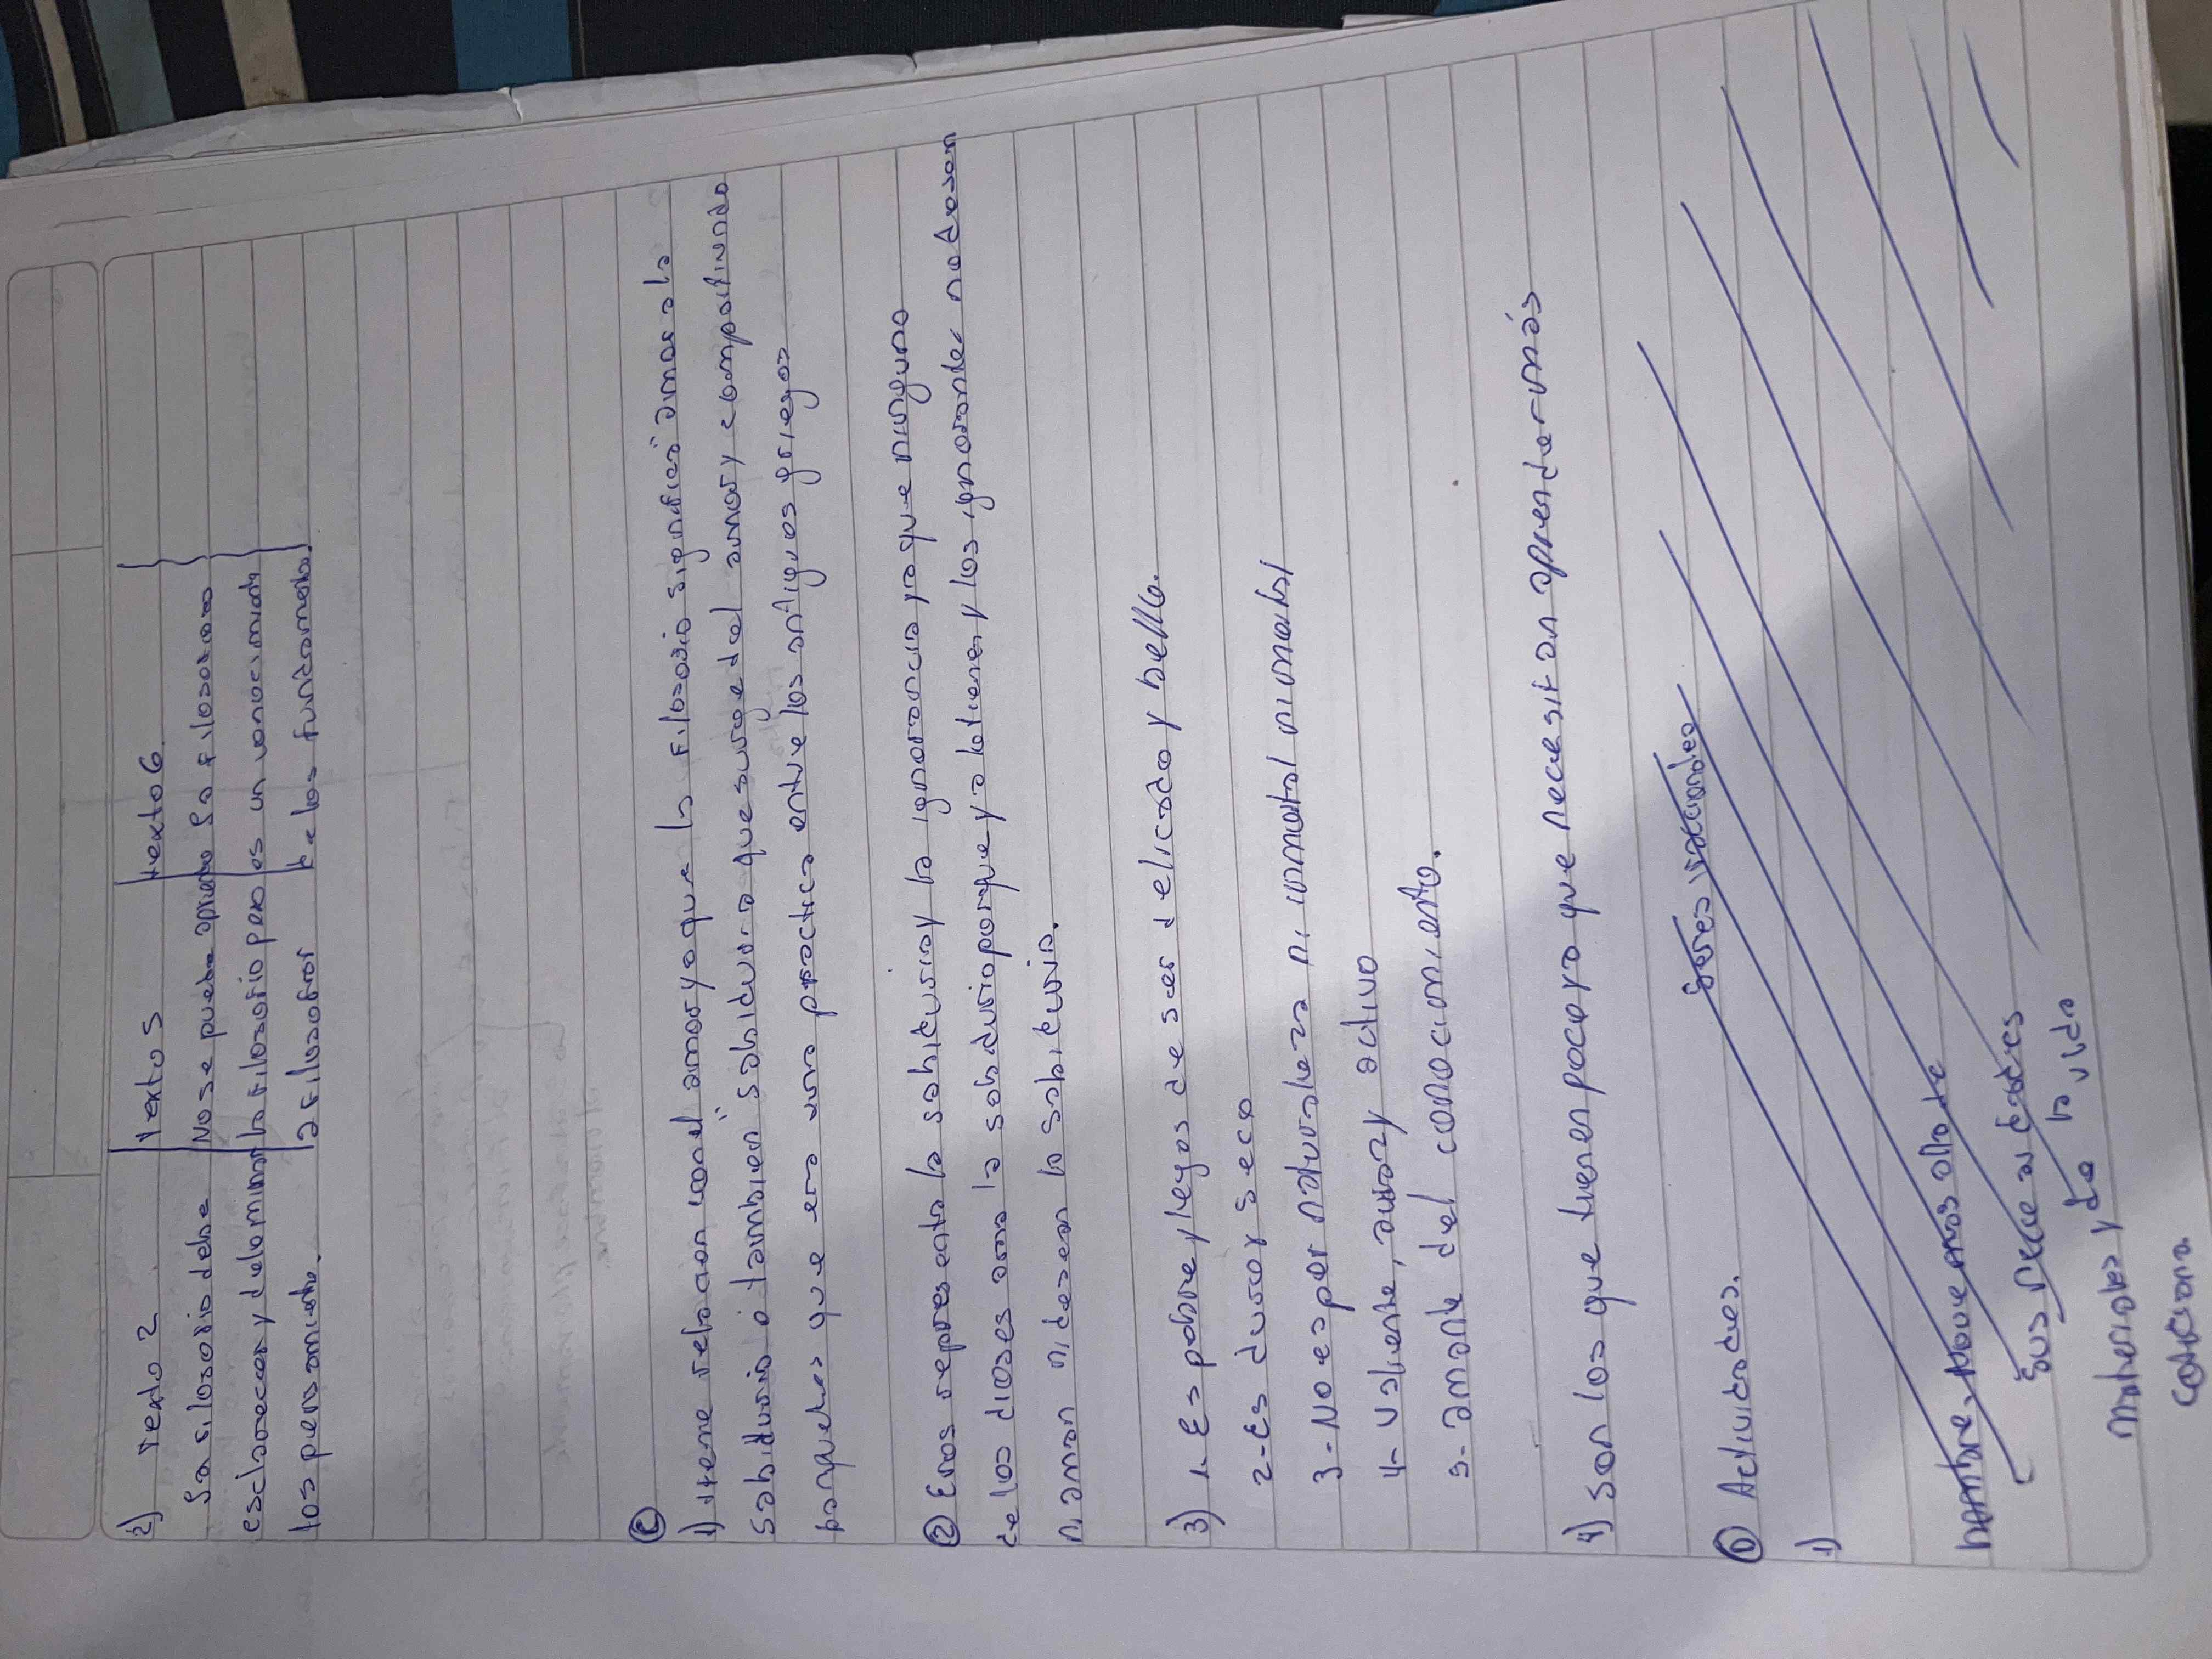 2) Texto 2 | texto 5 | texto 6
La filosofia debe | No se puede aprender | La filosofia
esclarecer y delimitar | la filosofia pero | es un conocimiento
los pensamiento. | a filosofar | de los fundamentos.
C
1) tiene relación con el amor ya que la filosofia significa amor a la
sabiduria o también sabiduria que surge del amor y compartiendo
banquetes que era una practica entre los antiguos griegos
2 Eros representa la sabiduria y la ignorancia ya que ninguno
de los dioses ama la sabiduria porque ya la tienen y los ignorantes no desean
ni aman ni desean la sabiduria.
3) 1. Es pobre y lejos de ser delicado y bello.
2- Es duro y seco
3- No es por naturaleza ni inmortal ni mortal
4- valiente, audaz y activo
5- amante del conocimiento.
4) son los que tienen poca pero que necesitan aprender más
D Actividades.
1)
Seres racionales
hombre, mas alla de
sus necesidades
materiales y de la vida
cotidiana